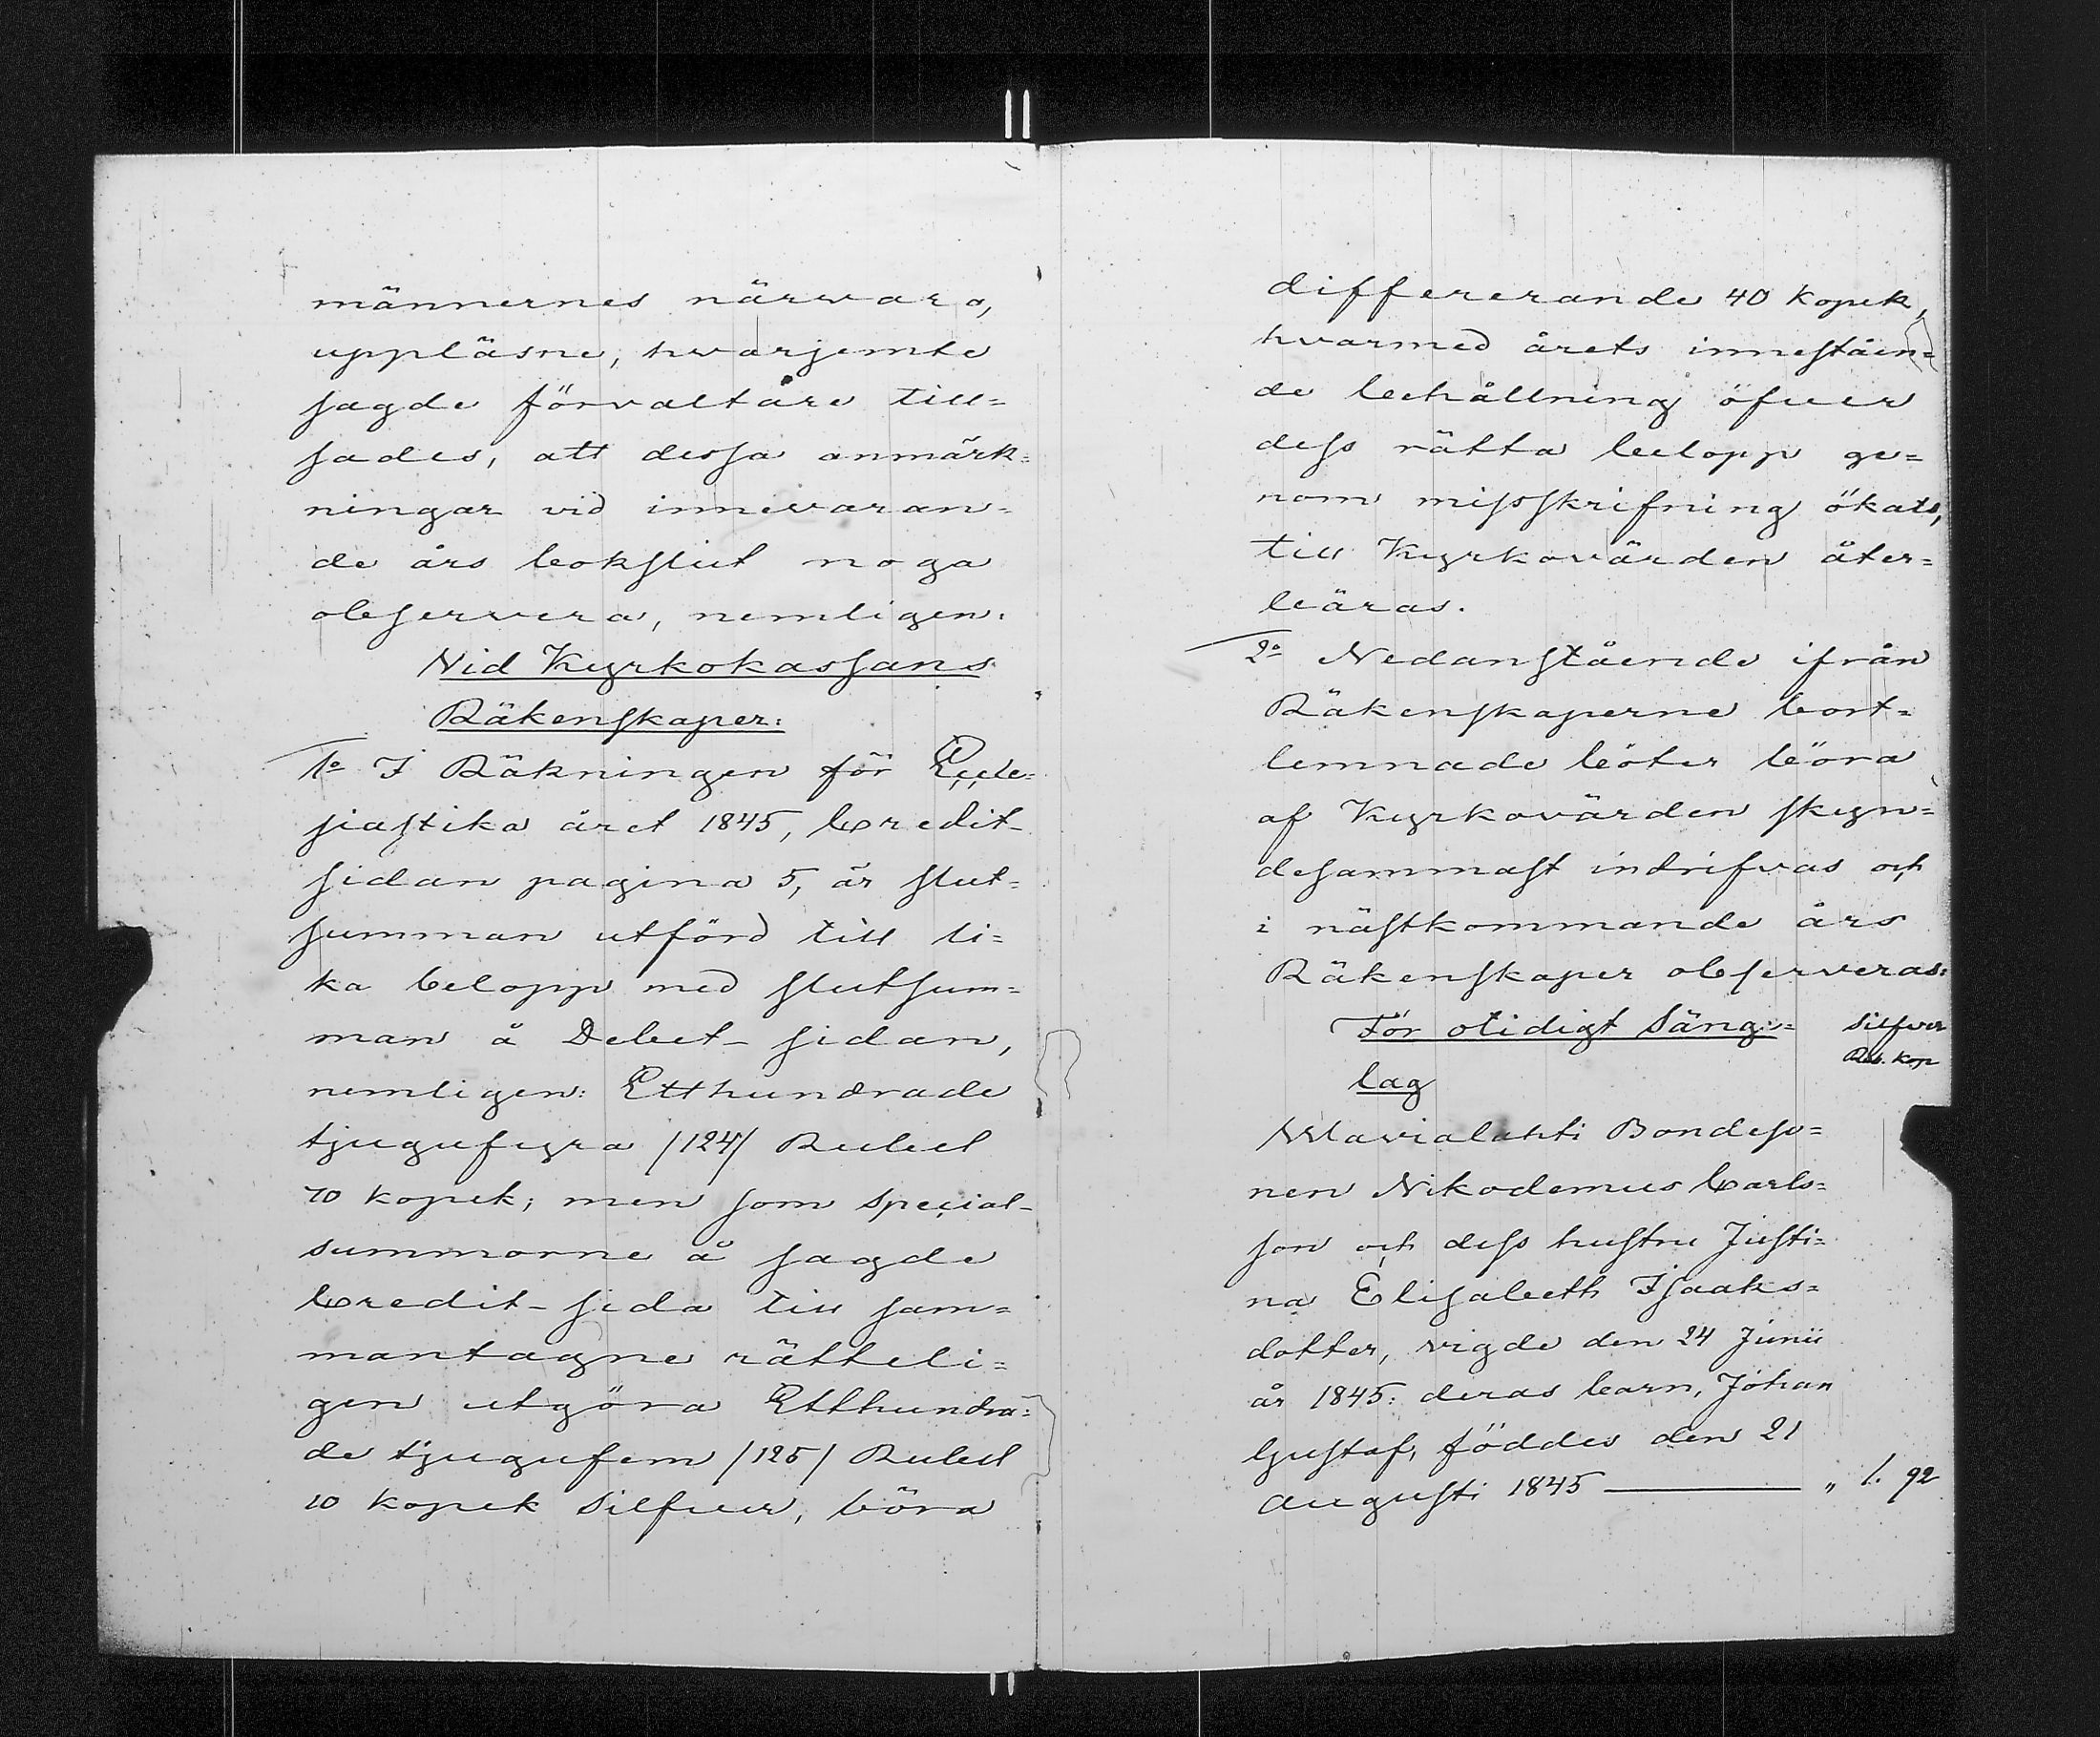 männernes närvaro,
uppläsne, hvarjemte
sagde förvaltare till-
sades, att dessa anmärk-
ningar vid innevaran-
de års bokslut noga
observera, nemligen:
Vid Kyrkokassans
Räkenskaper:
1o I Räkningen för Eccle-
siastika året 1845, Credit-
sidan pagina 5, är slut-
summan utförd till li-
ka belopp med slutsum-
man å Debet-sidan,
nemligen: Etthundrade
tjugufyra /124/ Rubel
70 kopek; men som special-
summorne å sagde
Credit-sida till sam-
mantagne rätteli-
gen utgöra Etthundra-
de tjugufem /125/ Rubel
10 kopek Silfver, böra
differerande 40 kopek,
hvarmed årets innestån-
de behållning öfver
dess rätta belopp ge-
nom misskrifning ökats,
till Kyrkovärden åter-
bäras.
2o Nedanstående ifrån
Räkenskaperne bort-
lemnade böter böra
af Kyrkovärden skyn-
desammast indrifvas och
i nästkommande års
Räkenskaper observeras:
För otidigt Säng- Silfver
lag Rub. Kop
Mavialahti Bondeso-
nen Nikodemus Carls-
son och dess hustru Justi-
na Elisabeth Isaaks-
dotter, vigde den 24 Junii
år 1845: deras barn, Johan
Gustaf, föddes den 21
Augusti 1845 — „ 1. 92